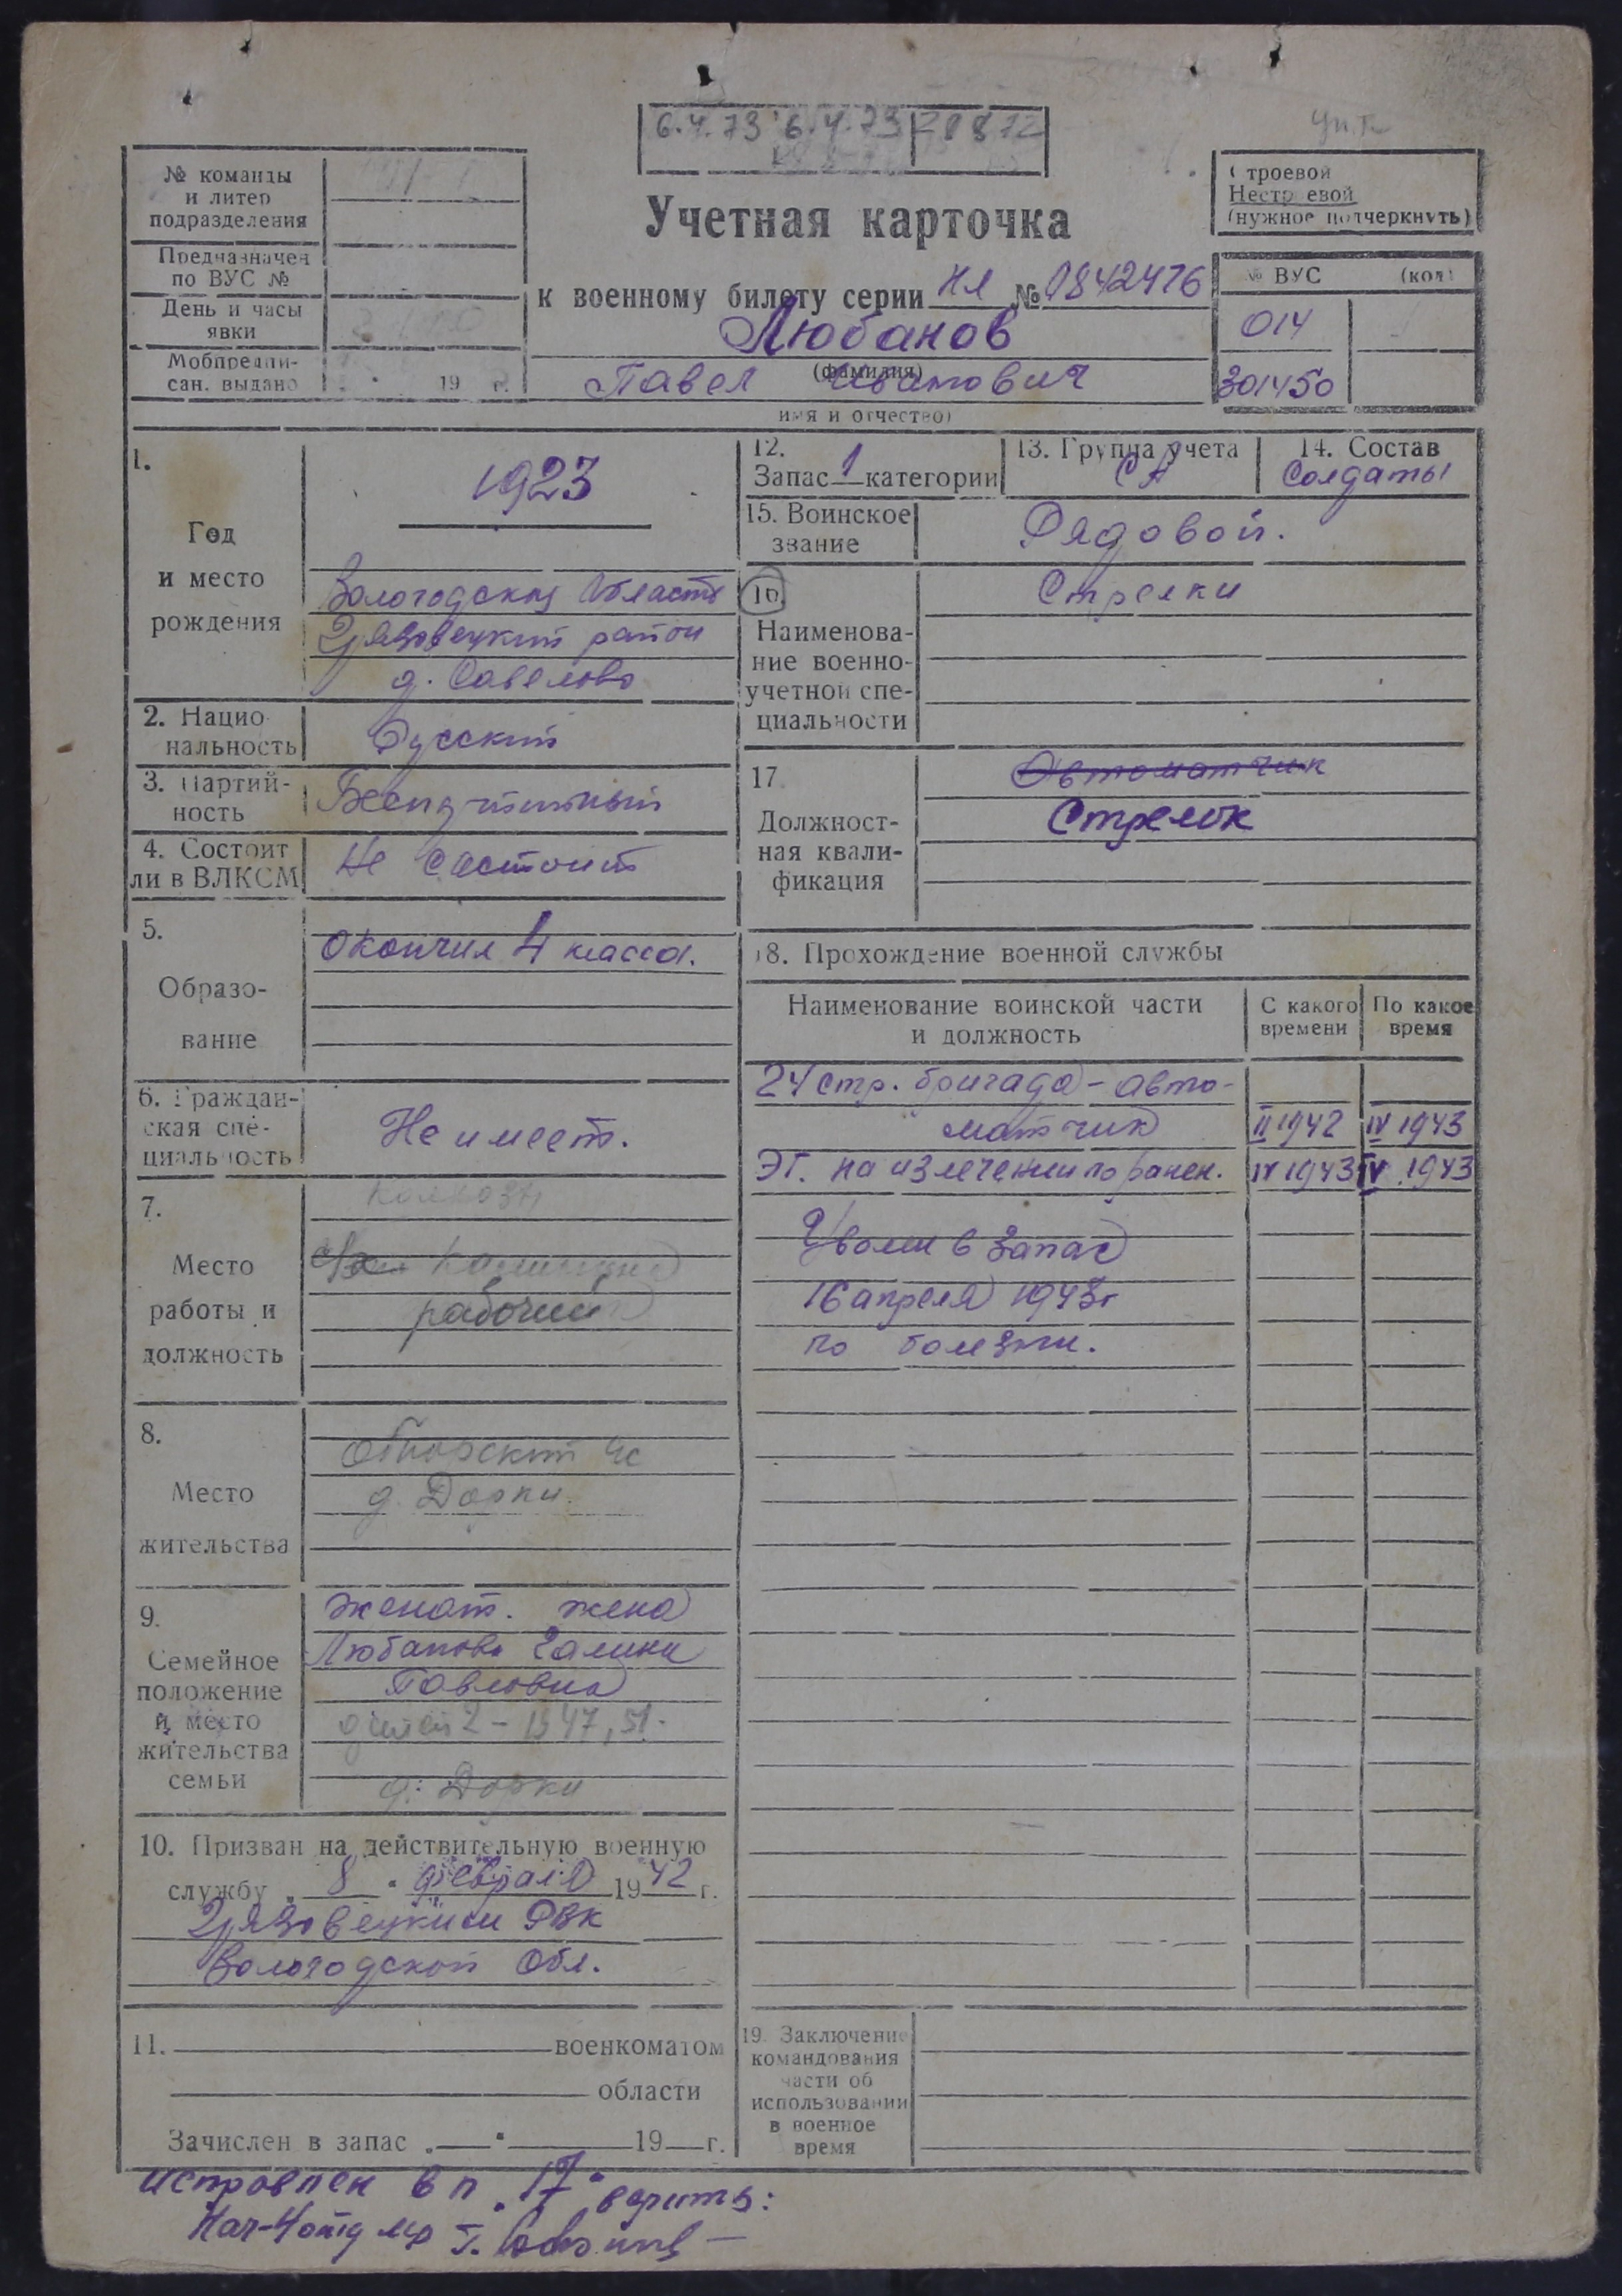 6.4.73 6.4.73
№ команды
и литер
подразделения
Предназначен
по ВУС №
День и часы
явки
Мобпредпи-
сан. выдано 19 г.
Учетная карточка
к военному билету серии НЛ № 0842476
Любанов
(фамилия)
Павел Иванович
имя и отчество)
Строевой
Нестроевой
(нужное подчеркнуть)
№ ВУС (код)
014
301450
1.
Год
и место
рождения
1923
Вологодская область
Грязовецкий район
д. Савелово
2. Нацио-
нальность
Русский
3. Партий-
ность
Беспартийный
4. Состоит
ли в ВЛКСМ
Не состоит
5.
Образо-
вание
Окончил 4 класса.
6. Граждан-
ская спе-
циальность
Не имеет.
7.
Место
работы и
должность
рабочий
8.
Место
жительства
д. Дорки
9.
Семейное
положение
и место
жительства
семьи
женат. жена
Любанова Галина
Павловна
детей 2 – 1947, 51.
д. Дорки
10. Призван на действительную военную
службу 8 февраля 1942 г.
Грязовецким РВК
Вологодской обл.
11. военкоматом
области
Зачислен в запас 19 г.
12.
Запас 1 категории
13. Группа учета
СА
14. Состав
Солдаты
15. Воинское
звание
Рядовой.
16
Наименова-
ние военно-
учетной спе-
циальности
Стрелки
17
Должност-
ная квали-
фикация
Автоматчик
Стрелок
18. Прохождение военной службы
Наименование воинской части
и должность
С какого
времени
По какое
время
24 стр. бригада – авто-
матчик II 1942 IV 1943
ЭГ. на излечении по ранен. IV 1943 IV 1943
Уволен в запас
16 апреля 1943г
по болезни.
19. Заключение
командования
части об
использовании
в военное
время
Исправлен в п. 17 верить: